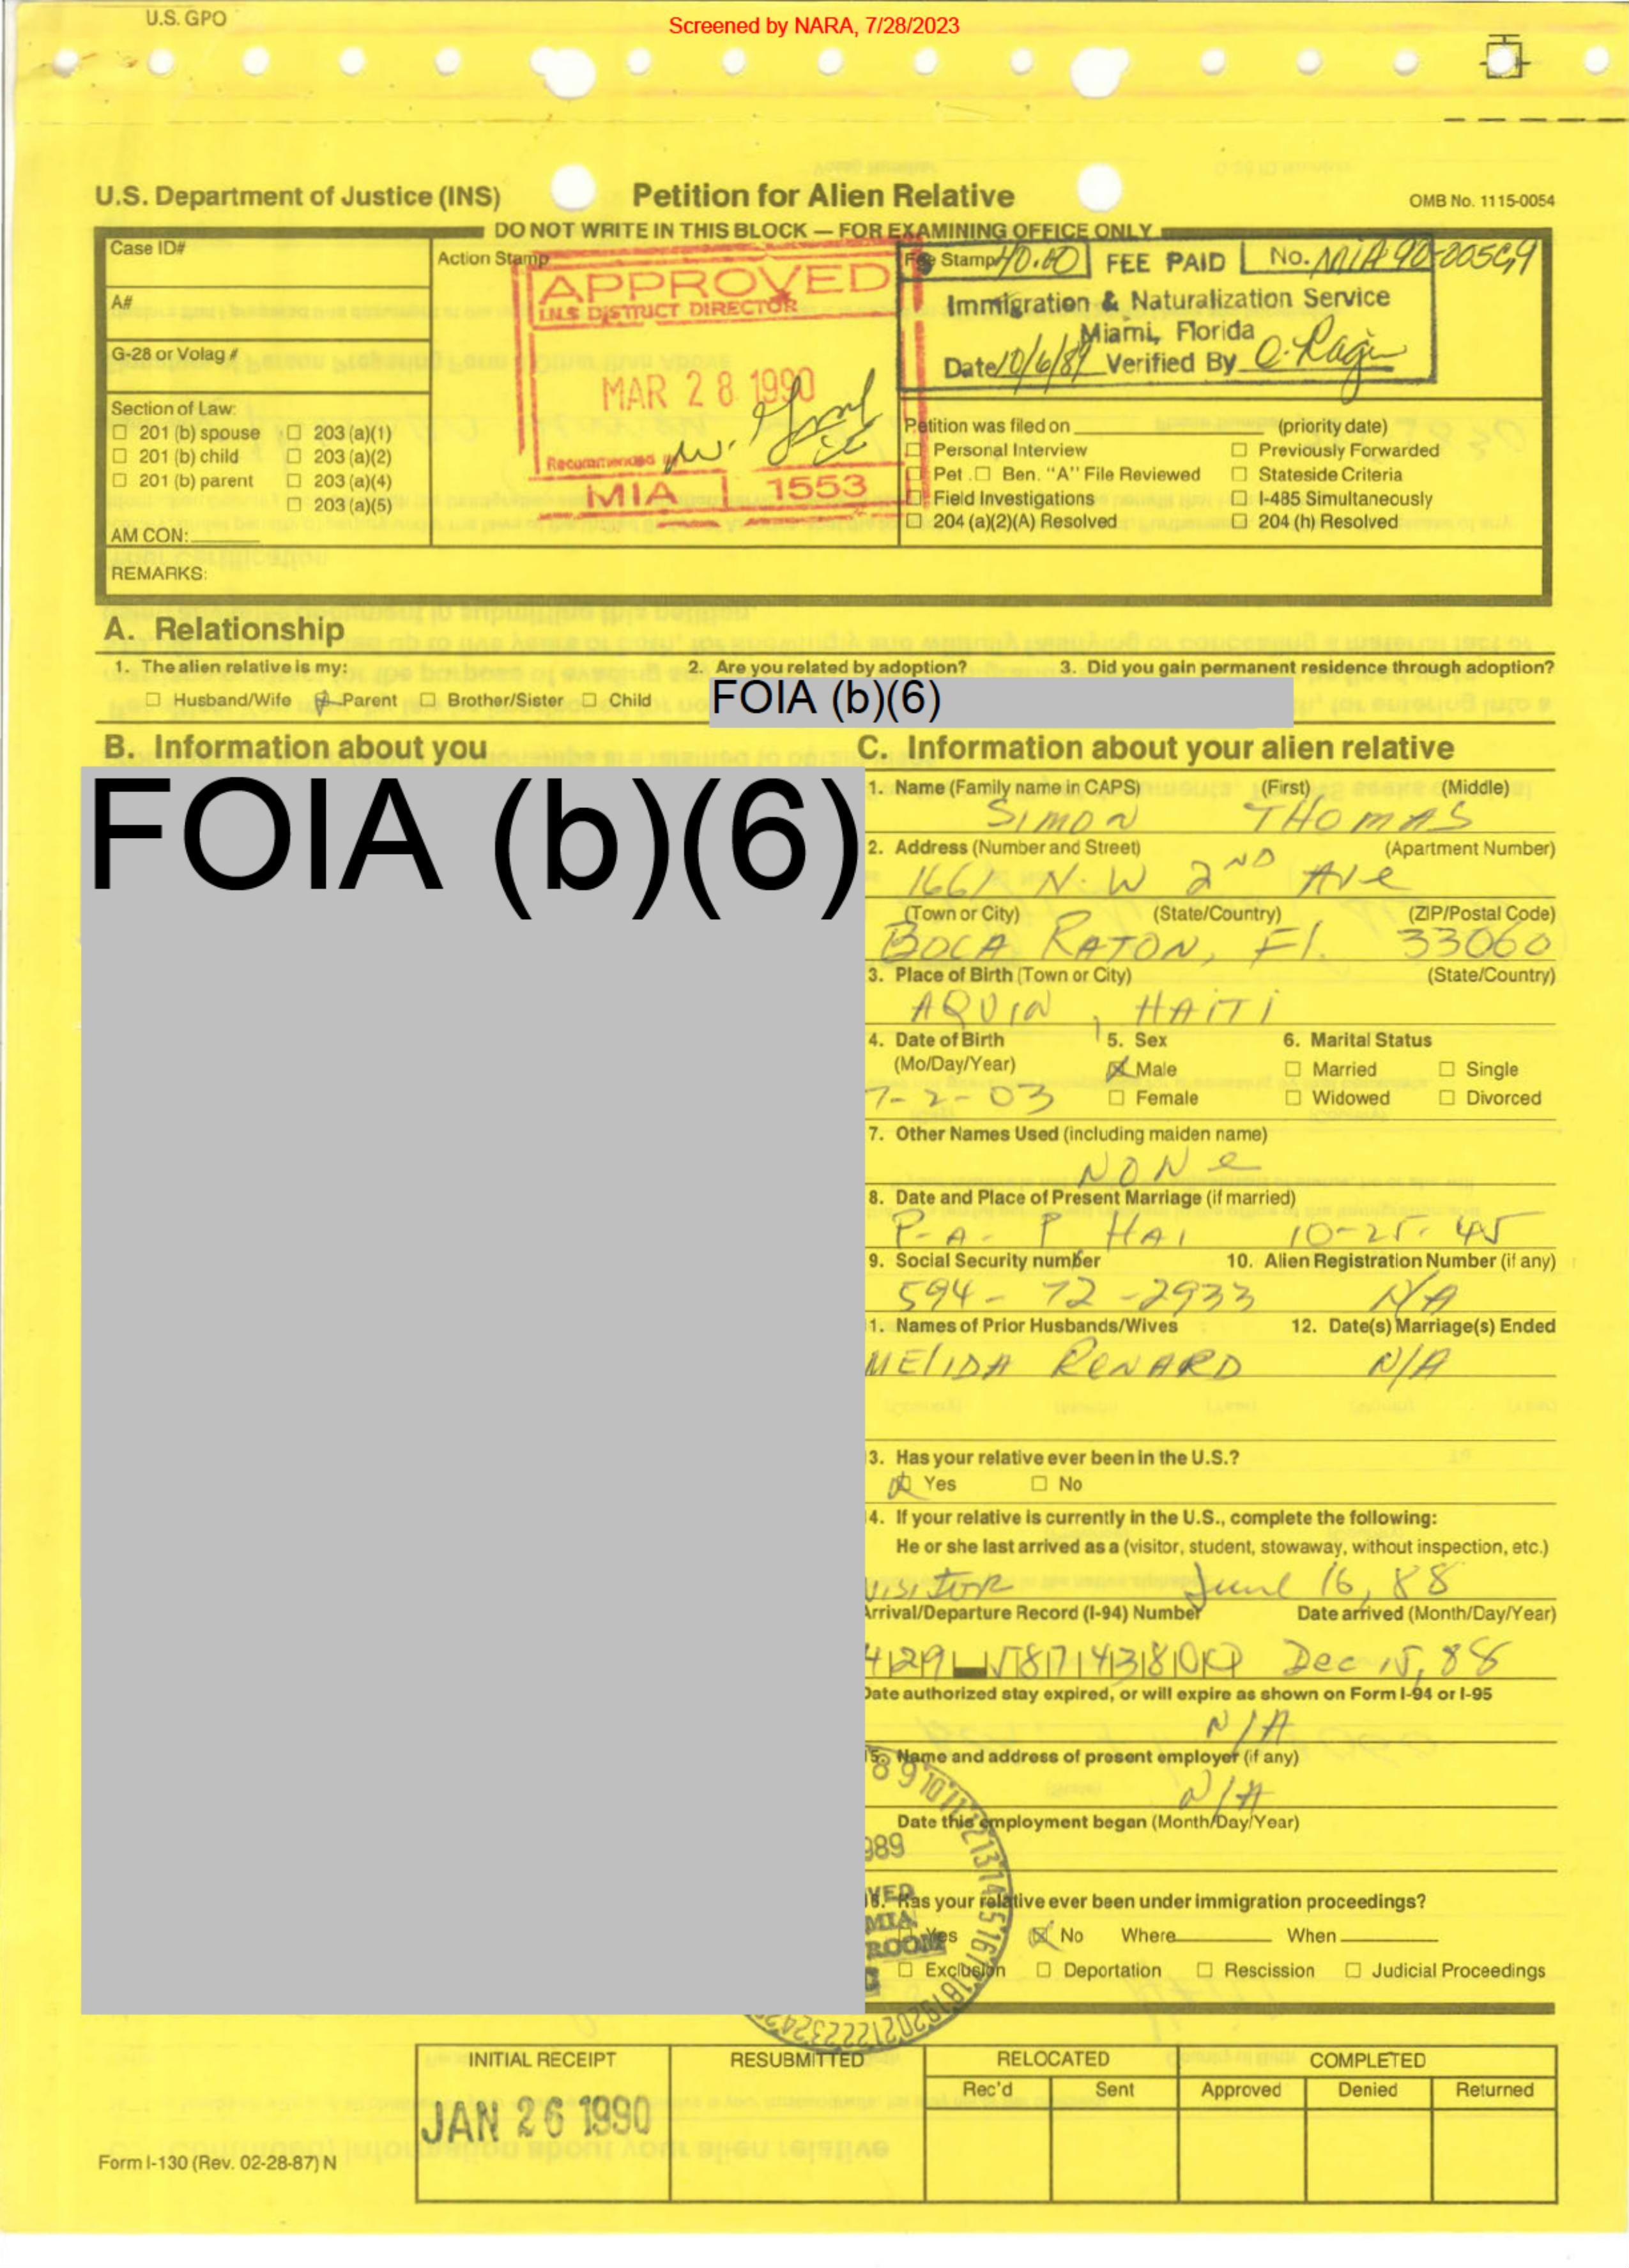 U.S. GPO
Screened by NARA, 7/28/2023
U.S. Department of Justice (INS)
Petition for Alien Relative
OMB No. 1115-0054
DO NOT WRITE IN THIS BLOCK — FOR EXAMINING OFFICE ONLY
Case ID#
A#
G-28 or Volag #
Section of Law:
☐ 201 (b) spouse ☐ 203 (a)(1)
☐ 201 (b) child ☐ 203 (a)(2)
☐ 201 (b) parent ☐ 203 (a)(4)
☐ 203 (a)(5)
AM CON:
Action Stamp
APPROVED
I.N.S DISTRICT DIRECTOR
MAR 28 1990
Recommended
MIA 1553
Fee Stamp 40.00 FEE PAID No. MIA 90-
Immigration & Naturalization Service
Miami, Florida
Date 10/6/89 Verified By
Petition was filed on (priority date)
☐ Personal Interview ☐ Previously Forwarded
☐ Pet. ☐ Ben. "A" File Reviewed ☐ Stateside Criteria
☐ Field Investigations ☐ I-485 Simultaneously
☐ 204 (a)(2)(A) Resolved ☐ 204 (h) Resolved
REMARKS:
A. Relationship
1. The alien relative is my:
☐ Husband/Wife ☒ Parent ☐ Brother/Sister ☐ Child
2. Are you related by adoption?
3. Did you gain permanent residence through adoption?
FOIA (b)(6)
B. Information about you
FOIA (b)(6)
C. Information about your alien relative
1. Name (Family name in CAPS) (First) (Middle)
SIMON THOMAS
2. Address (Number and Street) (Apartment Number)
1661 N.W 2ND Ave
(Town or City) (State/Country) (ZIP/Postal Code)
BOCA RATON, Fl. 33060
3. Place of Birth (Town or City) (State/Country)
AQUIN, HAITI
4. Date of Birth
(Mo/Day/Year)
7-2-03
5. Sex
☒ Male
☐ Female
6. Marital Status
☐ Married ☐ Single
☐ Widowed ☐ Divorced
7. Other Names Used (including maiden name)
NONe
8. Date and Place of Present Marriage (if married)
P-A-P HAI 10-25-45
9. Social Security number 10. Alien Registration Number (if any)
594-72-2933 N/A
1. Names of Prior Husbands/Wives 12. Date(s) Marriage(s) Ended
MElIDA RENARD N/A
3. Has your relative ever been in the U.S.?
☒ Yes ☐ No
4. If your relative is currently in the U.S., complete the following:
He or she last arrived as a (visitor, student, stowaway, without inspection, etc.)
VISITOR June 16, 88
Arrival/Departure Record (I-94) Number Date arrived (Month/Day/Year)
Dec 15, 88
Date authorized stay expired, or will expire as shown on Form I-94 or I-95
N/A
15. Name and address of present employer (if any)
N/A
Date this employment began (Month/Day/Year)
16. Has your relative ever been under immigration proceedings?
☐ Yes ☒ No Where When
☐ Exclusion ☐ Deportation ☐ Rescission ☐ Judicial Proceedings
INITIAL RECEIPT RESUBMITTED RELOCATED COMPLETED
Rec'd Sent Approved Denied Returned
JAN 26 1990
Form I-130 (Rev. 02-28-87) N